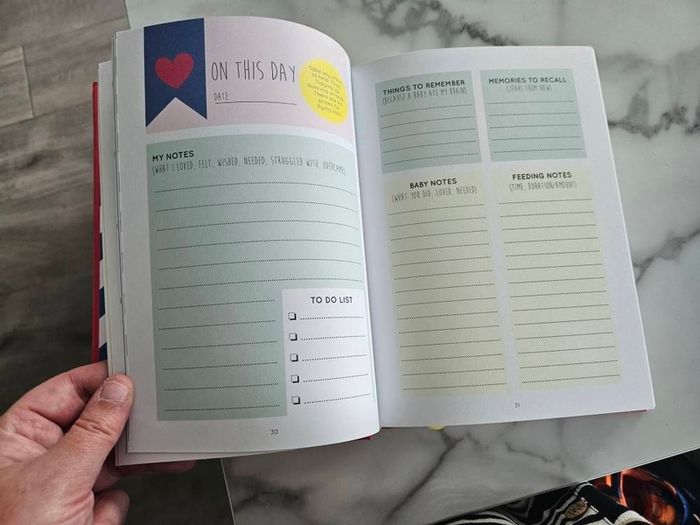 ON THIS DAY
DATE:
MY NOTES
(WHAT I LOVED, FELT, WISHED, NEEDED, STRUGGLED WITH, OVERCAME)
TO DO LIST
30
THINGS TO REMEMBER
(BECAUSE A BABY ATE MY BRAIN)
MEMORIES TO RECALL
(YEARS FROM NOW)
BABY NOTES
(WHAT YOU DID, LOVED, NEEDED)
FEEDING NOTES
(TIME, DURATION/AMOUNT)
31